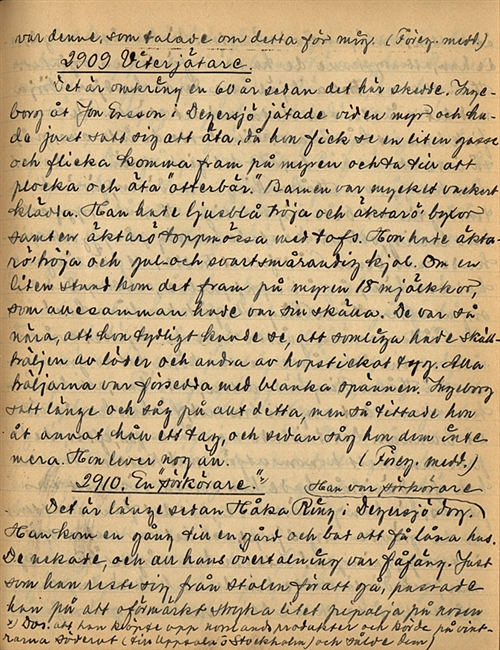 var denne, som talade om detta för mig. (Föreg. medd.)
2909 Viterjätare.
Det är omkring en 60 år sedan det här skedde. Inge-
borg åt Jon Ersson i Degersjö jätade vid en myr och ha-
de just satt sig att äta, då hon fick se en liten gosse
och flicka komma fram på myren och ta till att
plocka och äta "åtterbär." Barnen var mycket vackert
klädda. Han hade ljusblå tröja och äktarö' byxor
samt en äktarö toppmössa med tofs. Hon hade äkta-
rö' tröja och gul- och svartsmårandig kjol. Om en
liten stund kom det fram på myren 18 mjälkkor,
som allesamman hade var sin skälla. De var så
nära, att hon tydligt kunde se, att somliga hade skäll-
träljen av läder och andra av hopstickat tyg. Alla
träljarna var försedda med blanka spännen. Ingeborg
satt länge och såg på allt detta, men så tittade hon
åt annat håll ett tag, och sedan såg hon dem inte
mera. Hon lever nog än. (Föreg. medd.)
2910. En "förkörare." x) Han var förkörare
Det är länge sedan Håka Ring i Degersjö dog.
Han kom en gång till en gård och bat att få låna hus.
De nekade, och all hans övertalning var fåfäng. Just
som han reste sig från stolen för att gå, passade
han på att oförmärkt stryka litet pipolja på nosen
x) Dvs. att han köpte upp norrlandsprodukter och körde på vint-
rarna söderut (till Uppsala o Stockholm) och sålde dem)